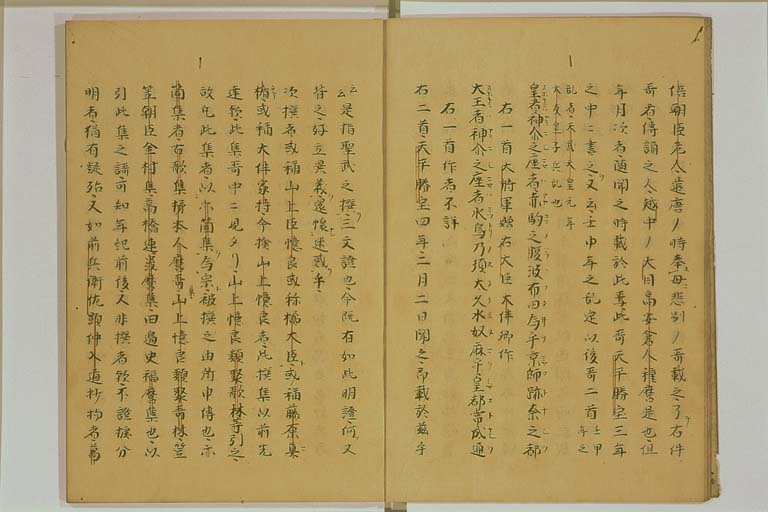 信朝臣老人遣唐ノ時奉母悲別ノ哥載之了右件
哥者傳誦之人越中ノ大目高安倉人種麿是也但
年月次者随聞之時載於此焉此哥天平勝宝三年
之中ニ書之又云壬申年之乱定以後哥二首
皇者神尓之座者赤駒之腹波布田為乎京師跡奈之都
右一首大将軍贈右大臣大伴卿作
大王者神尓之座者水鳥乃須太久水奴麻乎皇都常成通
右一首作者不詳
右二首天平勝宝四年二月二日聞之即載於茲乎
云是指聖武之撰三文證也今既有如此明證何又
昔之好立異義還復迷惑乎
次撰者或稱山上臣憶良或称橘大臣或稱藤原
或稱大伴家持今撿山上憶良者此撰集以前先
達欤此集哥中ニ見タリ山上憶良類聚歌林等引之
故凡此集者以亦箇集為宗被撰之由所申傳也亦
箇集者古歌集柿本人麿哥山上憶良類聚哥林笠
笠朝臣金村集高橋連蟲麿集田邊史福麿集也以
引此集之謌可知年記前後又非撰者欤不證據分
明者猶有疑殆又如前兵衛佐顕仲入道抄物者